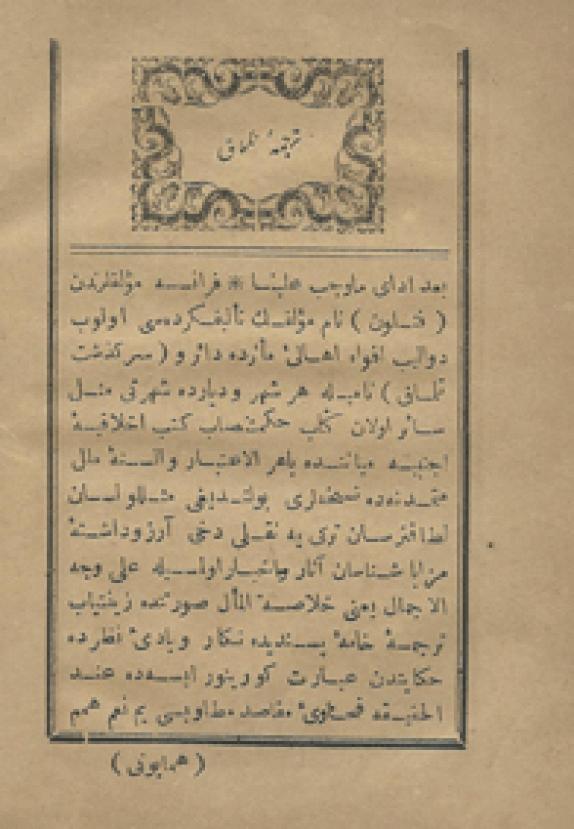 ترجمهٔ تلماق
بعد ادای ماوجب علینا * فرانسه مؤلفلرندن
( فنلون ) نام مؤلفك تألیفکرده‌سی اولوب
دوالیب افواه اهالیٔ مأزده دائر و ( سرکذشت
تلماق ) نامیله هر شهر و دیارده شهرتی مثل
سائر اولان کتاب حکمتنصاب کتب اخلاقیهٔ
اجنبیه میاننده باهر الاعتبار و السنهٔ ملل
متمدنه‌ده نسخه‌لری بولندیغی مثللو لسان
لطافترسان ترکی یه نقلی دخی آرزوداشتهٔ
مزایا شناسان آثار واخبار اولمسیله علی وجه
الاجمال یعنی خلاصة المأل صورتنده زینتیاب
ترجمهٔ خامهٔ پسندیده نکار و بادیٔ نظرده
حکایتدن عبارت کورینور ایسه‌ده عند
الحقیقه فحاویٔ مقاصد مطاویسی یم نعم همم
( همایونی )